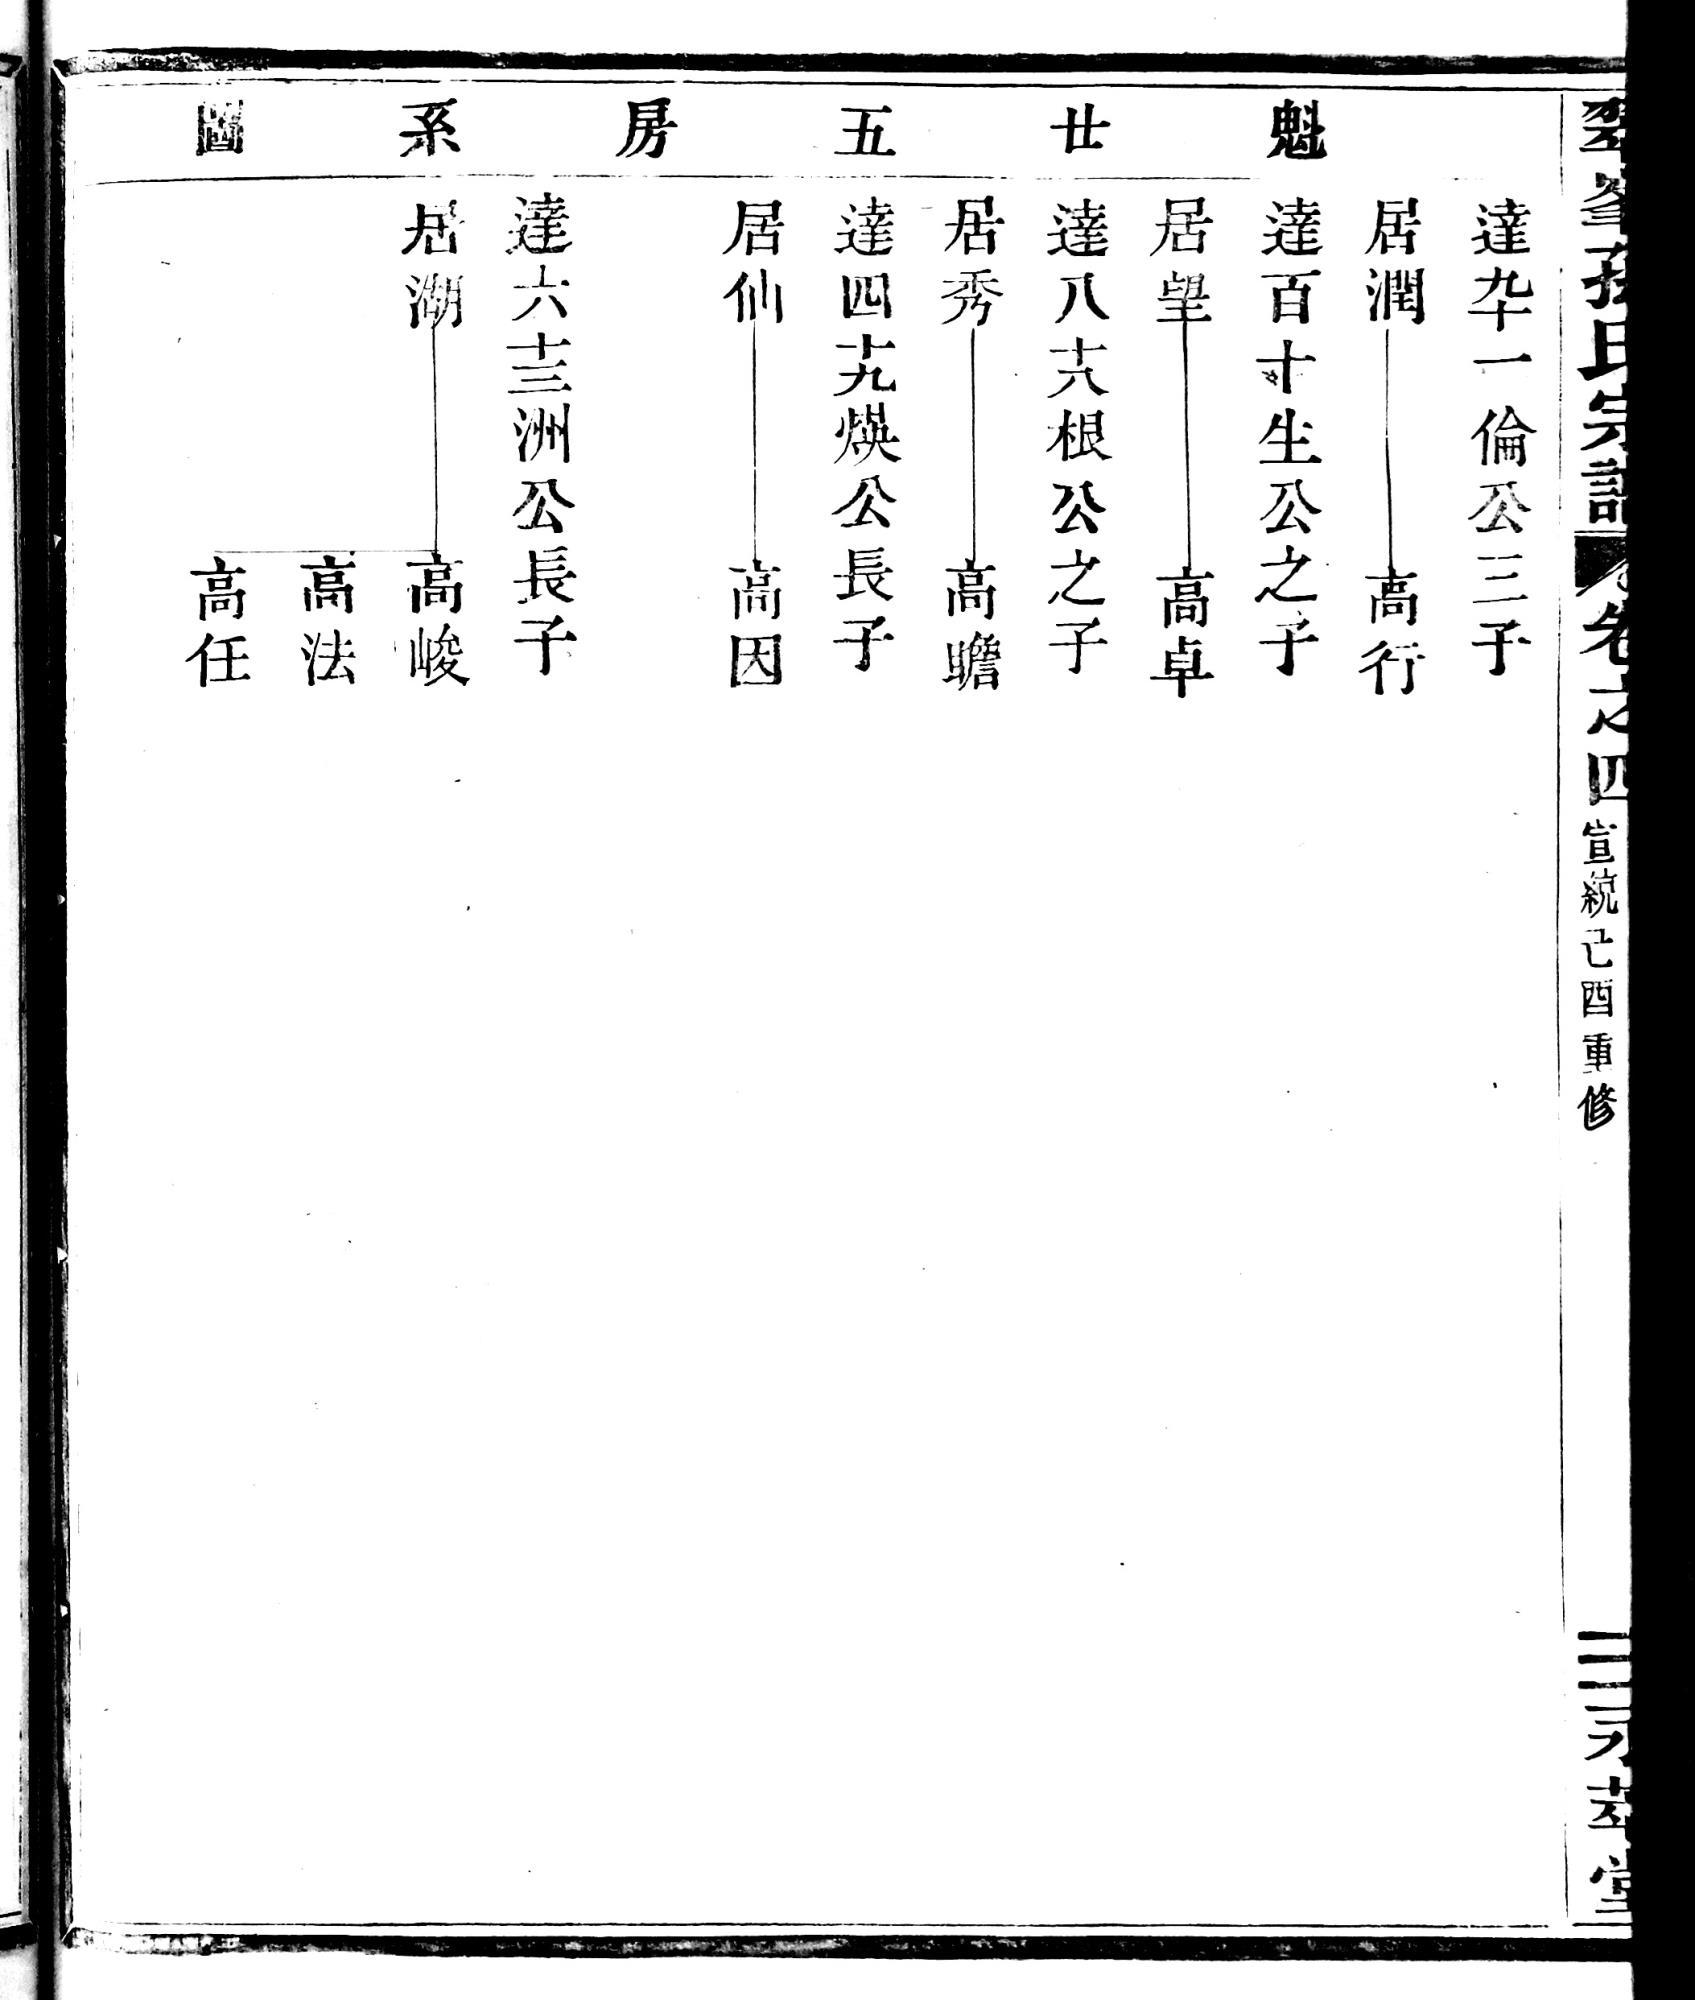 魁廿五房系圖
達九十一倫公三子
居潤
高行
達百十生公之子
居望
高卓
達八十六根公之子
居秀
高瞻
達四十九煐公長子
居仙
高因
達六十三洲公長子
居湖
高峻
高法
高任
翠峯孫氏宗譜
卷之四
宣統己酉重修
永萃堂